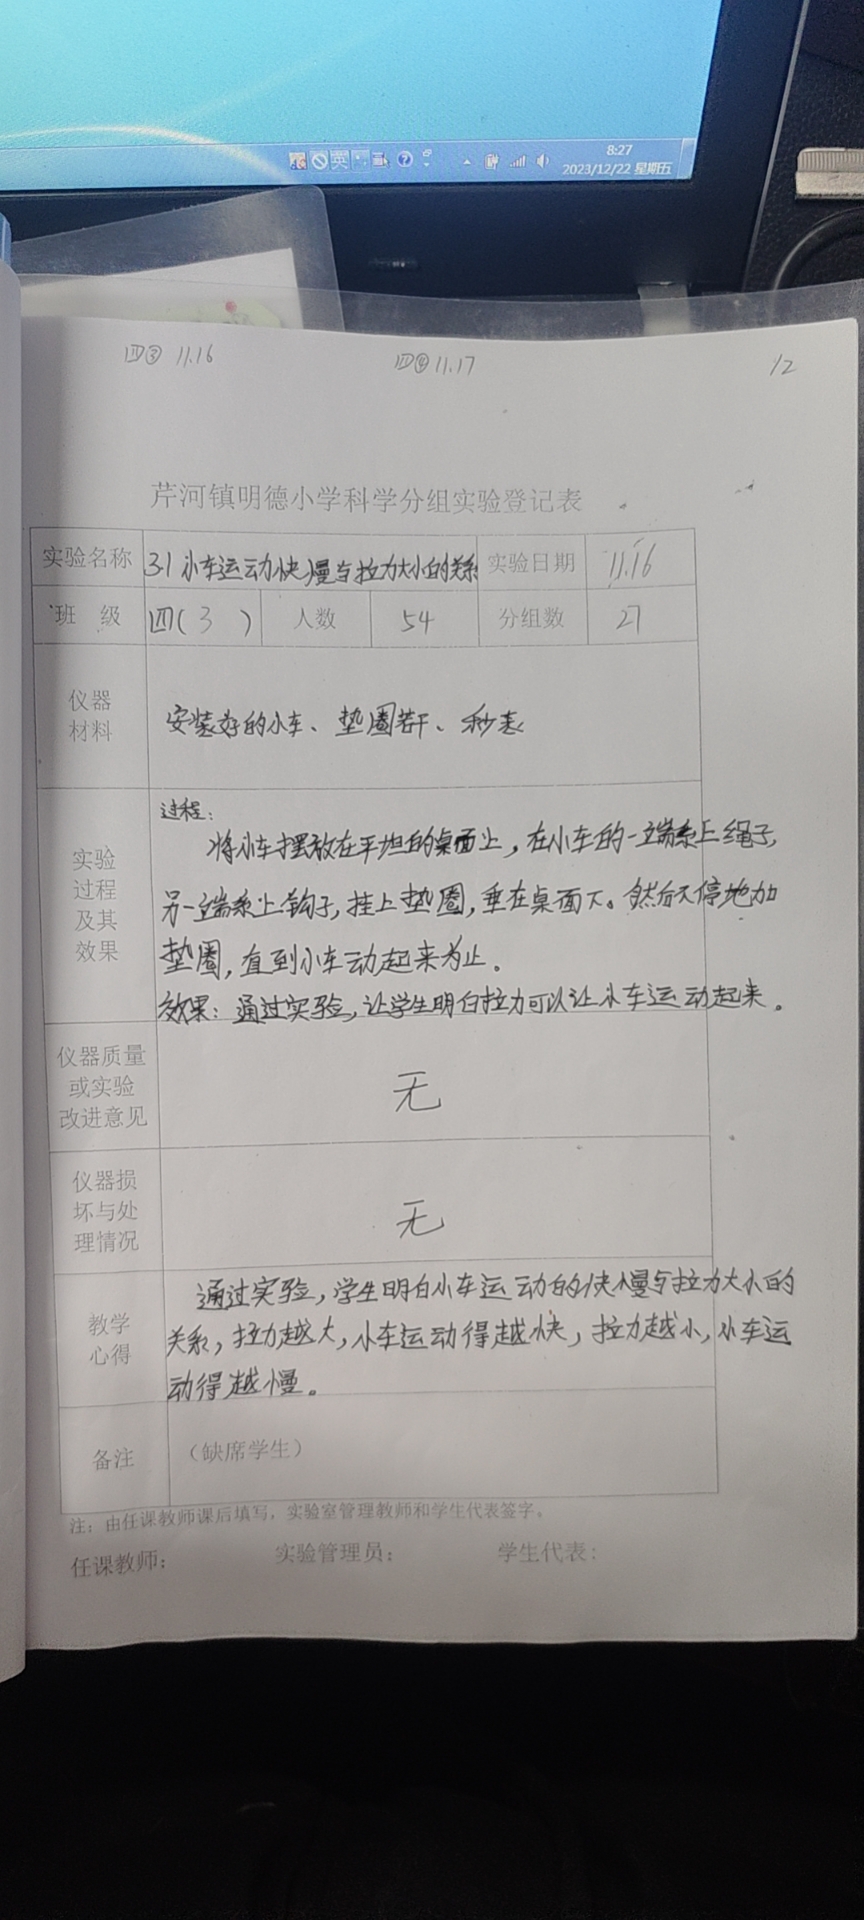 英
8:27
2023/12/22 星期五
四③ 11.16
四④ 11.17
1/2
芹河镇明德小学科学分组实验登记表
实验名称 3.1 小车运动快慢与拉力大小的关系 实验日期 11.16
班 级 四(3) 人数 54 分组数 27
仪器
材料
安装好的小车、垫圈若干、秒表
实验
过程
及其
效果
过程:
将小车摆放在平坦的桌面上,在小车的一端系上绳子,
另一端系上钩子,挂上垫圈,垂在桌面下。然后不停地加
垫圈,直到小车动起来为止。
效果:通过实验,让学生明白拉力可以让小车运动起来。
仪器质量
或实验
改进意见
无
仪器损
坏与处
理情况
无
教学
心得
通过实验,学生明白小车运动的快慢与拉力大小的
关系,拉力越大,小车运动得越快,拉力越小,小车运
动得越慢。
备注 (缺席学生)
注:由任课教师课后填写,实验室管理教师和学生代表签字。
任课教师: 实验管理员: 学生代表: